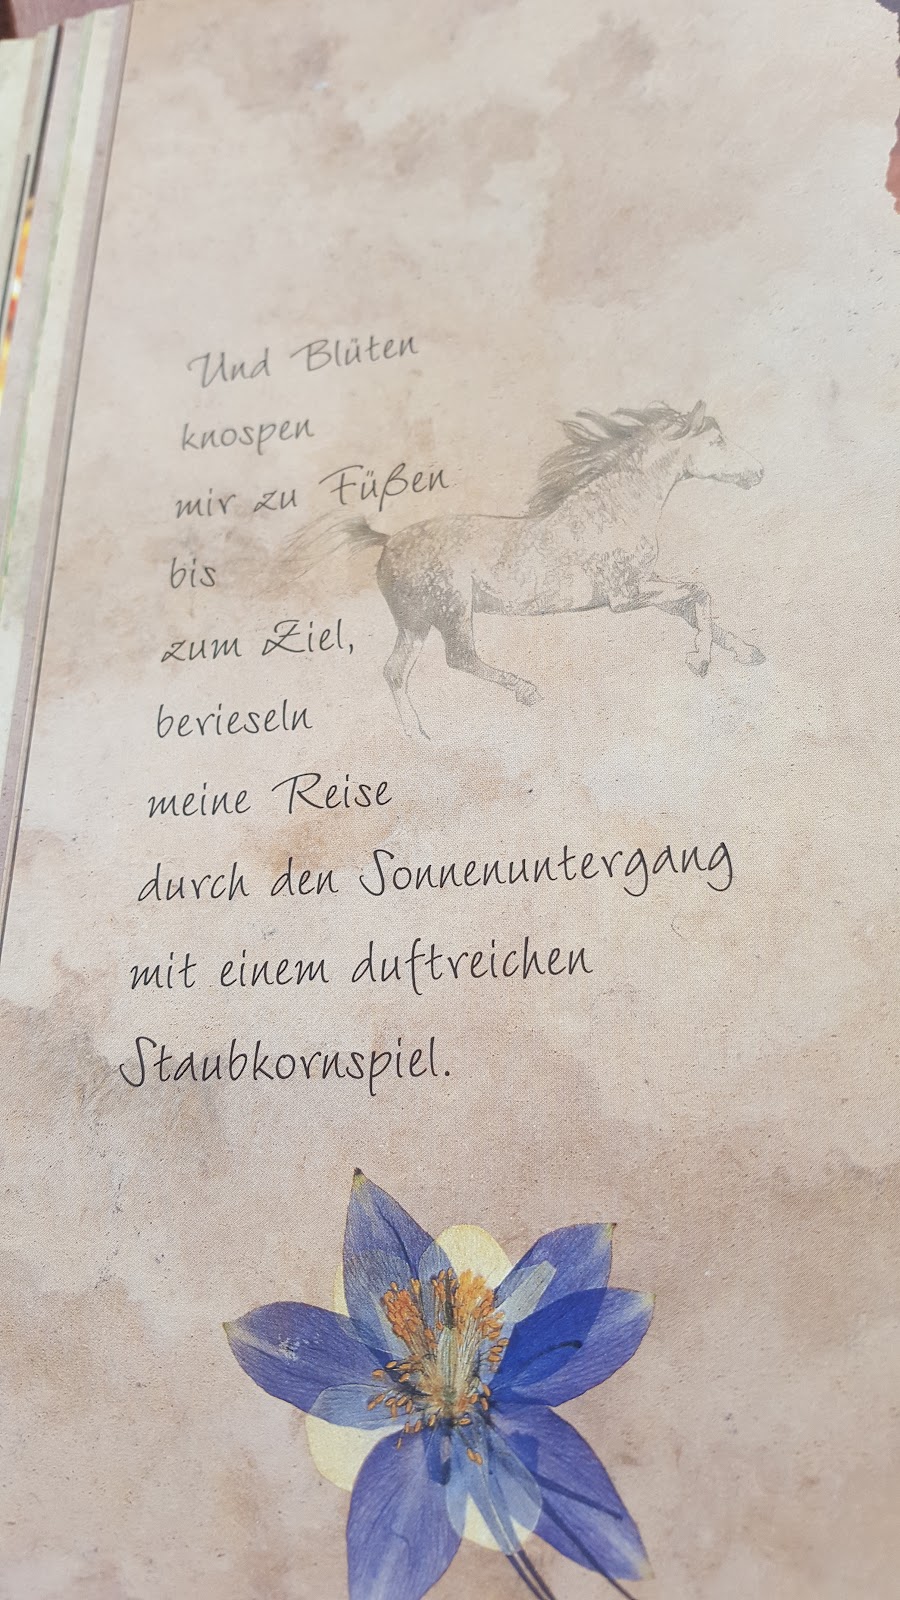 Und Blüten
knospen
mir zu Füßen
bis
zum Ziel,
berieseln
meine Reise
durch den Sonnenuntergang
mit einem duftreichen
Staubkornspiel.